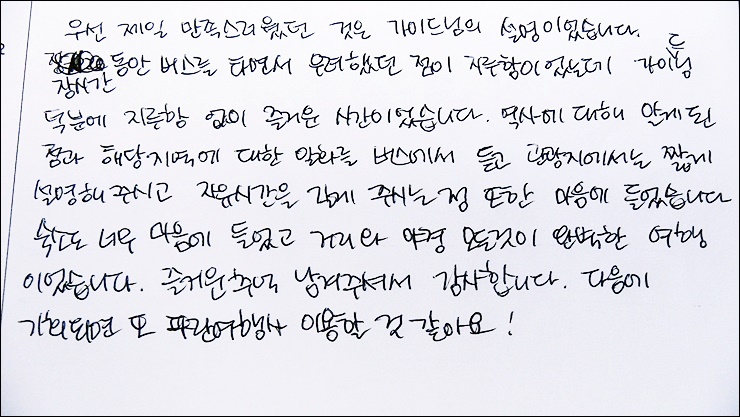 우선 제일 만족스러웠던 것은 가이드님의 설명이었습니다.
장시간 동안 버스를 타면서 우려했던 점이 지루함이었는데 가이드님
덕분에 지루함 없이 즐거운 시간이었습니다. 역사에 대해 알게된
점과 해당지역에 대한 일화를 버스에서 듣고 관광지에서는 짧게
설명해주시고 자유시간을 길게 주시는 점 또한 마음에 들었습니다
숙소도 너무 마음에 들었고 거리와 야경 모든것이 완벽한 여행
이었습니다. 즐거운 추억 남겨주셔서 감사합니다. 다음에
기회되면 또 파란여행사 이용할 것 같아요!